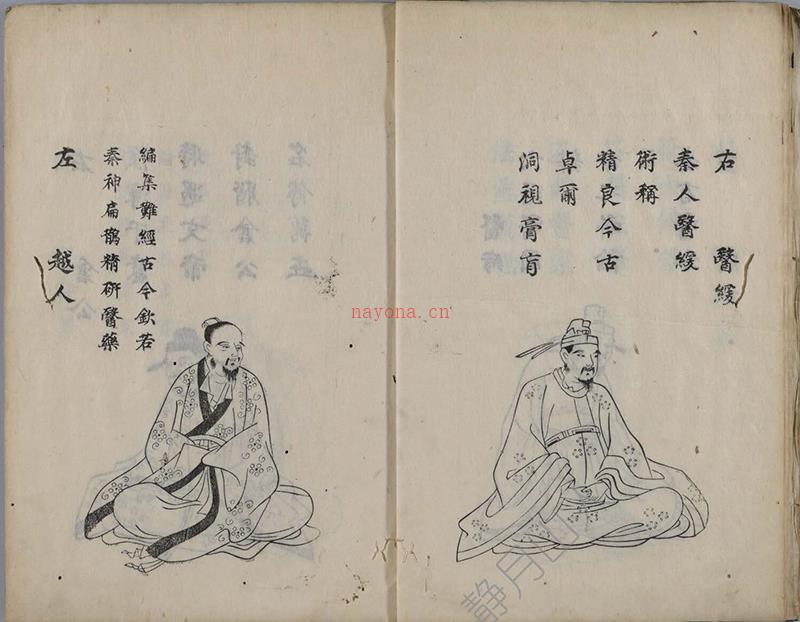 右 醫緩
秦人醫緩
術稱
精良今古
卓爾
洞視膏肓
左 越人
秦神扁鵲精研醫藥
編集難經古今欽若
nayona.cn
静月